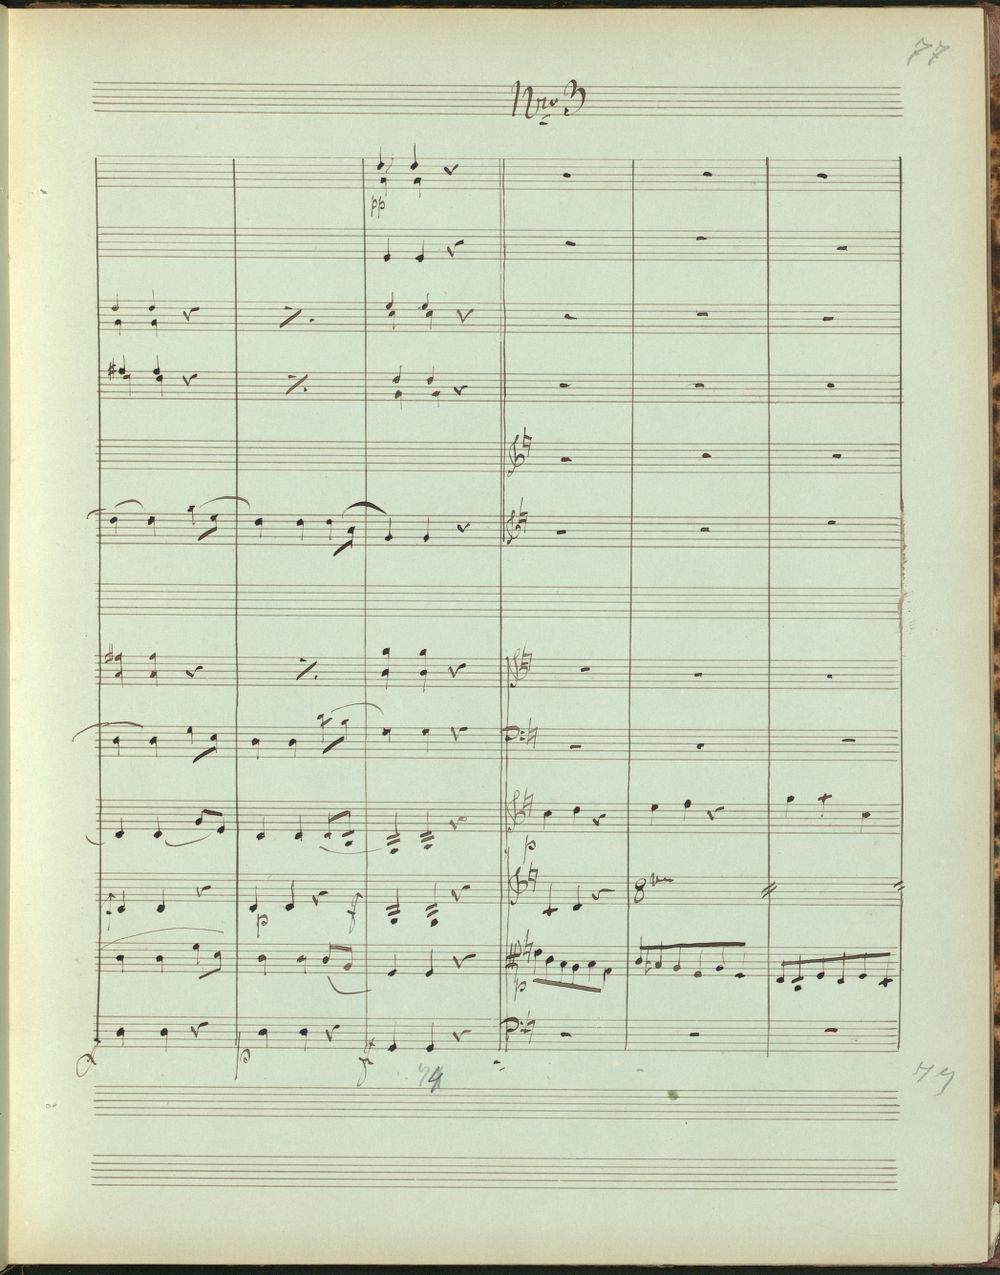 77
Nro 3
pp
p
8va
p
f
p
p
f
74
79